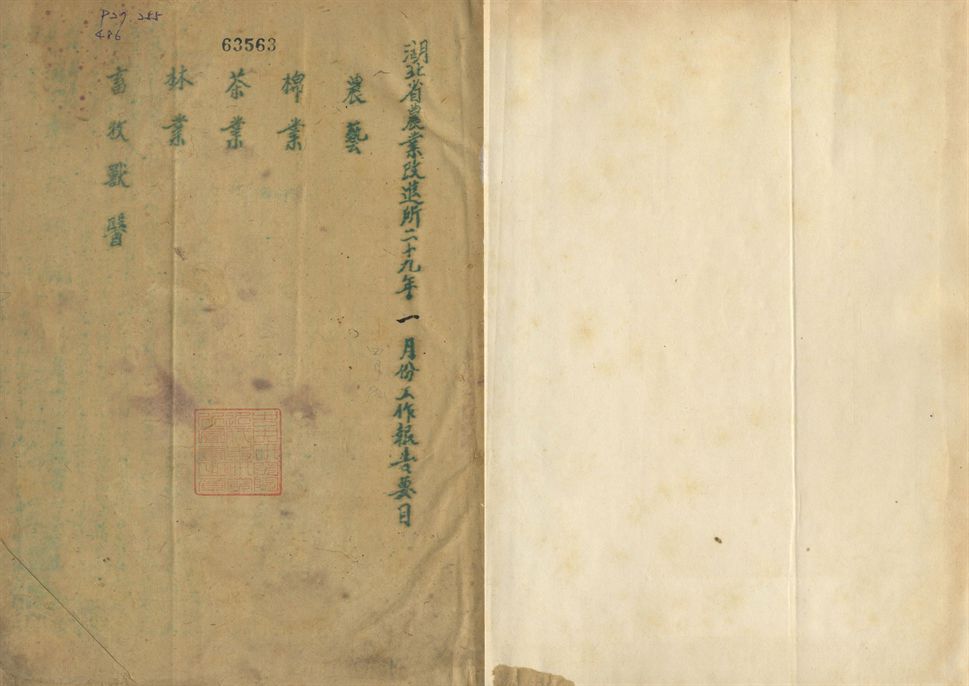 湖北省農業改進所二十九年一月份工作報告要目
農藝
棉業
茶業
林業
畜牧獸醫
63563
P27 255
486